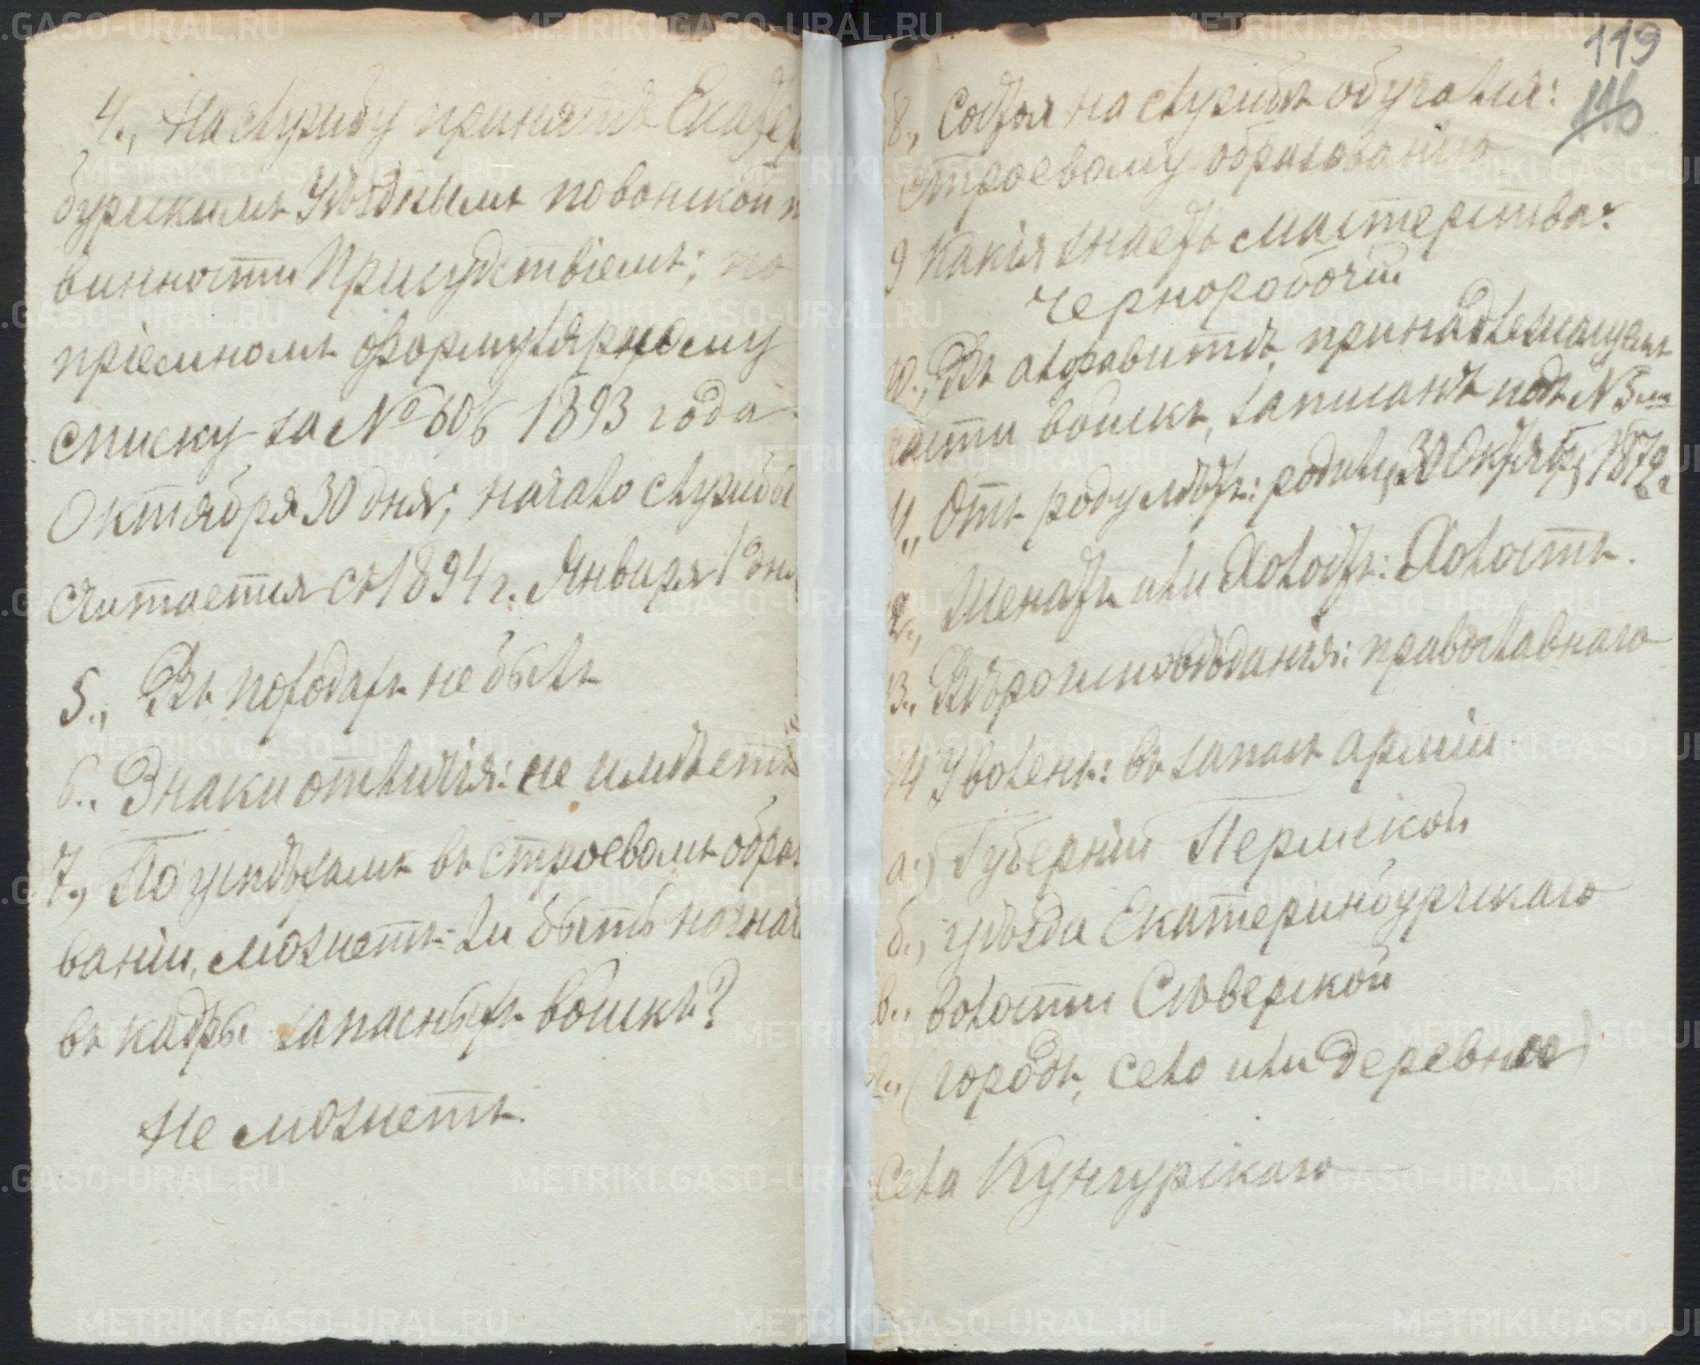 4., На службу принятъ Екатер
бургскимъ Уѣзднымъ по воинской п
винности Присудствiемъ; по
прiемномъ формулярному
списку за № 606 1893 года
Октября 30 дня; начало службы
считается съ 1894 г. Января 1 дня
5., Въ походахъ не былъ
6., Знаки отличiя: не имѣетъ
7., По успѣхамъ въ строевомъ обра
ванiи, можетъ ли быть назнач
въ кадры запасныхъ войскъ?
Не можетъ.
119
116
8., Состоя на службѣ обучался:
строевому образованiю
9 Какiя знаетъ мастерства:
Чернорабочiй
10., Въ алфавитѣ, принадлежащемъ
части войскъ, записанъ подъ № 5
11., Отъ роду лѣтъ: родился 30 Октября 1872 г.
2., Женатъ или Холостъ: Холостъ.
13., Вѣроисповѣданiя: православнаго
14 Уволенъ: въ запасъ армiи.
а.) Губернiи Пермской
б., уѣзда Екатеринбургскаго
в., волости Сѣверской
(городъ, село или деревня)
Села Кунгурскаго
METRIKI.GASO-URAL.RU